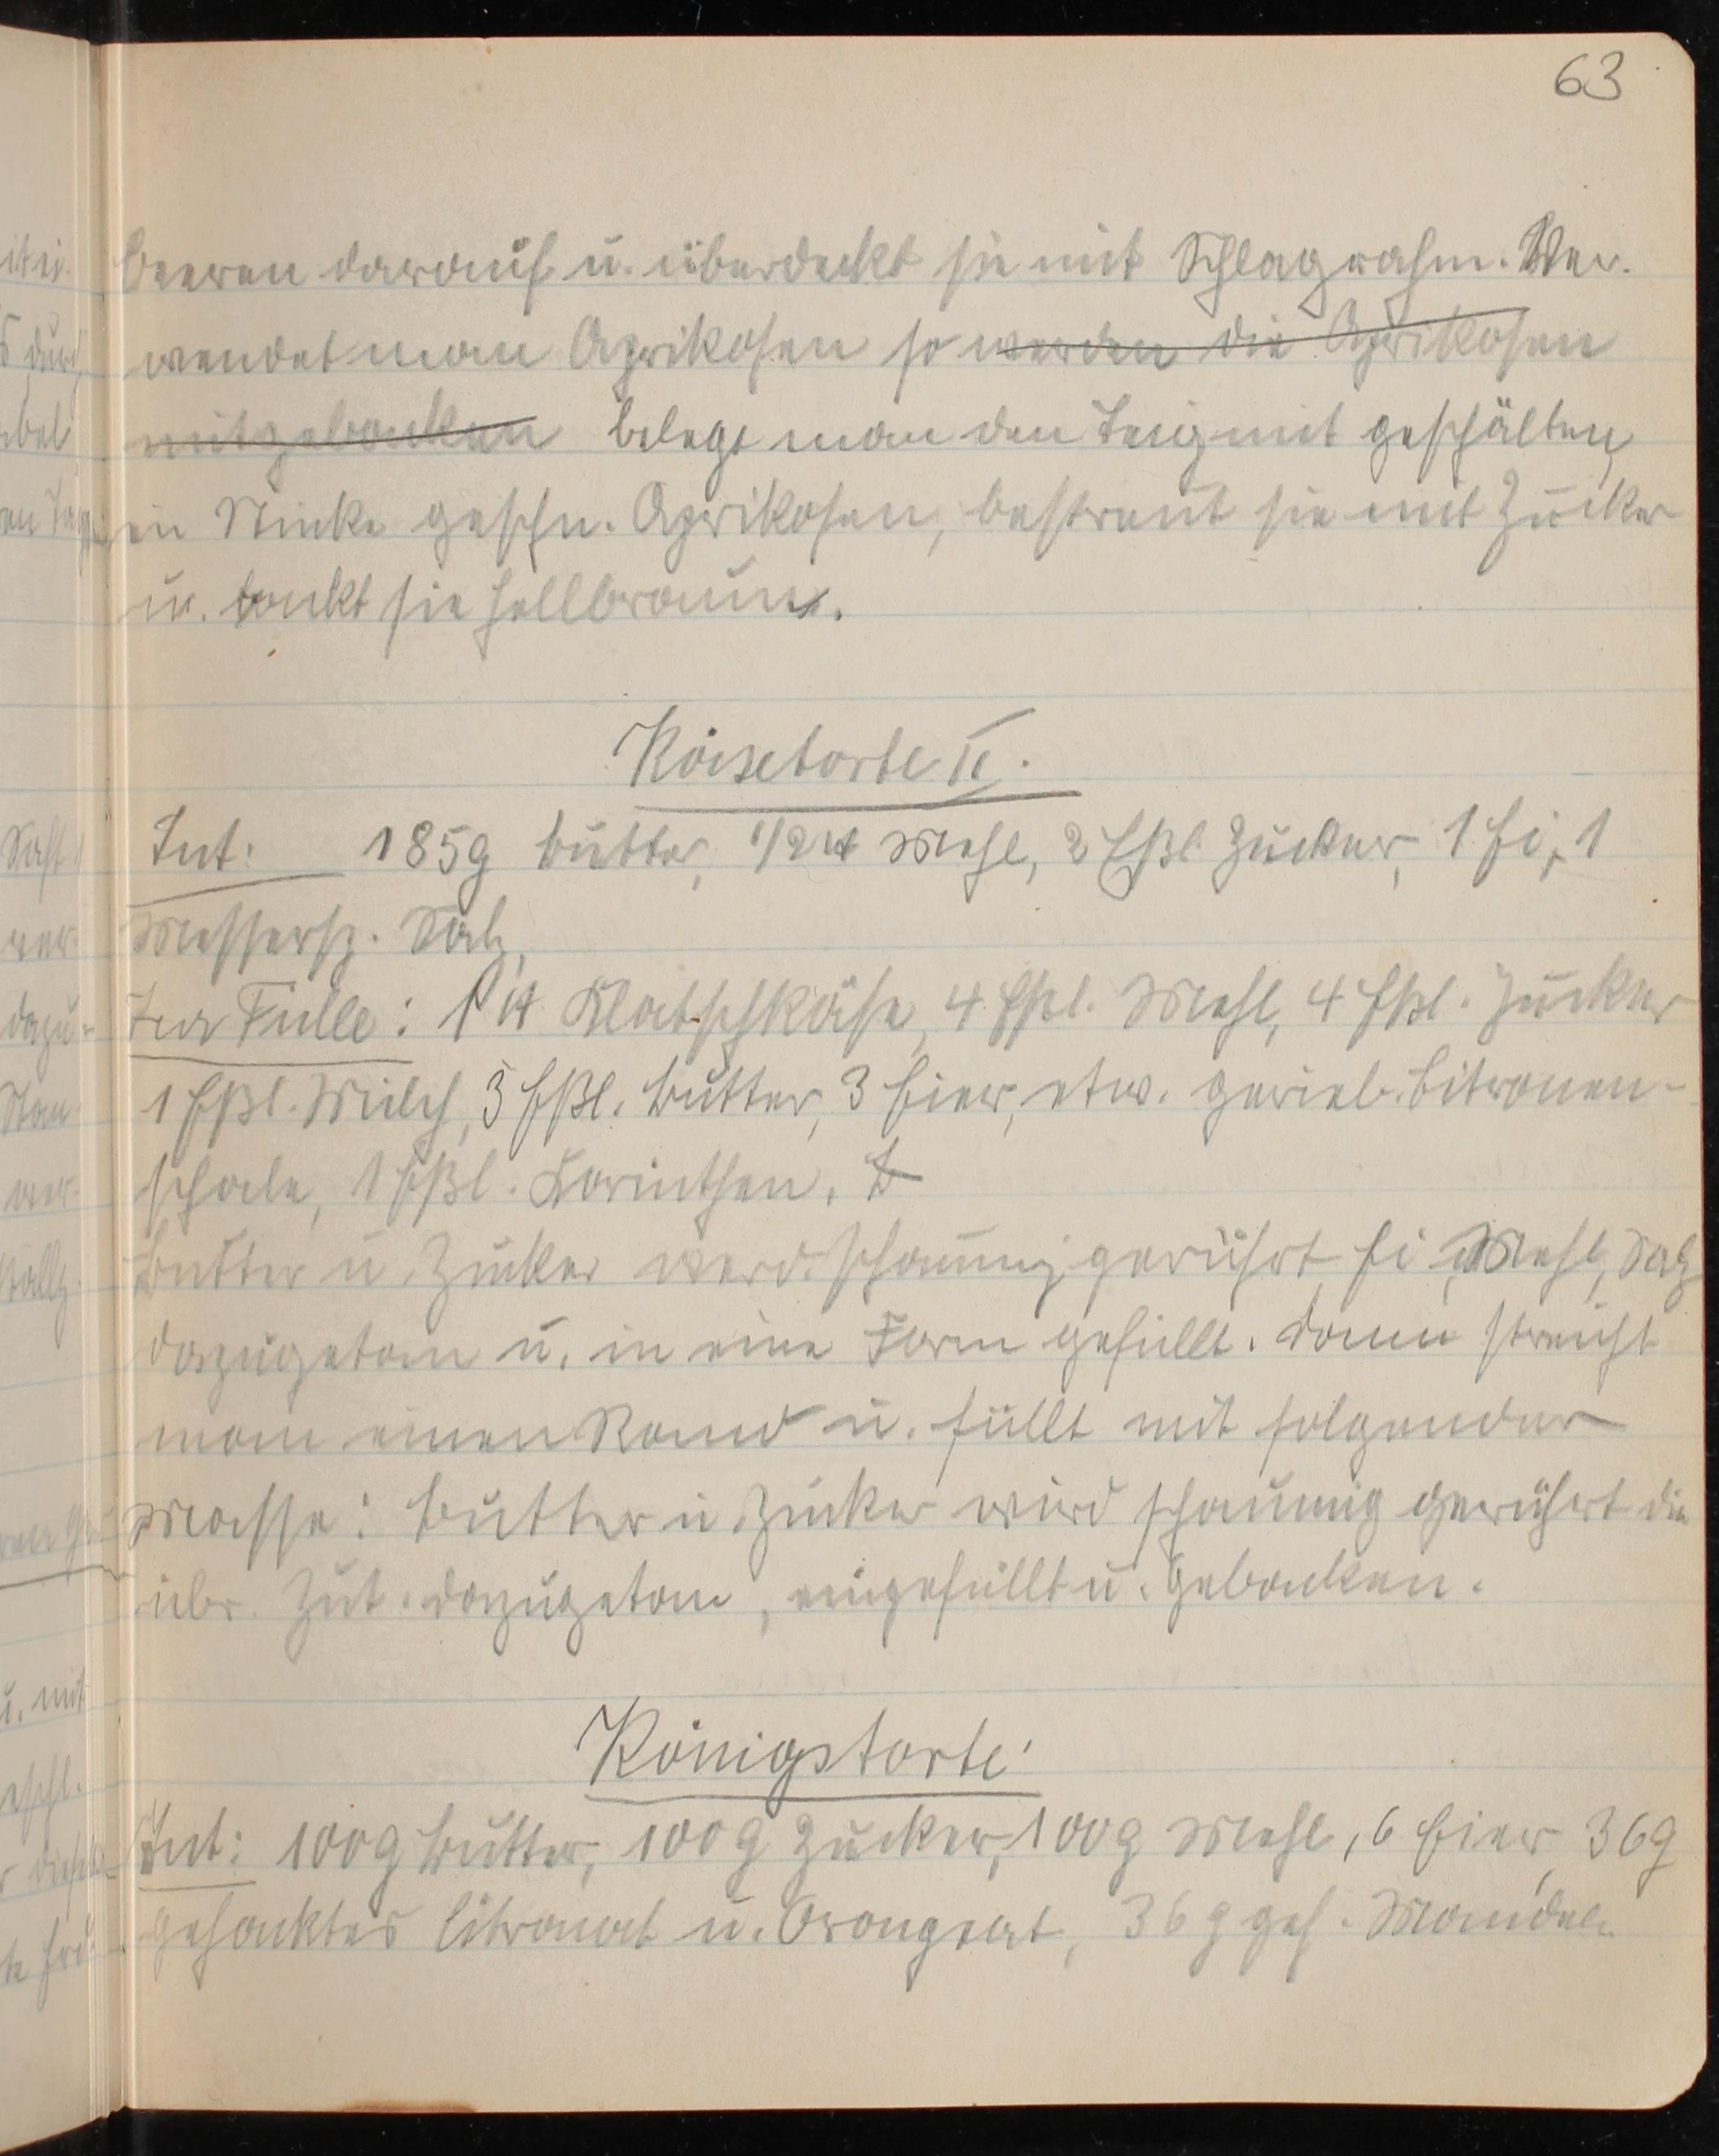 63
beeren darauf u. überdeckt sie mit Schlagrahm. Ver-
wendet man Aprikosen so werden die Aprikosen
mitgebacken belege man den Teig mit geschälten,
in Stücke geschn. Aprikosen, bestreut sie mit Zucker
u. backt sie hellbraun.
Käsetorte II.
Zut: 185g Butter, 1/2 ℔ Mehl, 2 Eßl. Zucker, 1 Ei, 1
Messersp. Salz,
Zur Fülle: 1 ℔ Klatschkäse, 4 Eßl. Mehl, 4 Eßl. Zucker
1 Eßl. Milch, 3 Eßl. Butter, 3 Eier, etw. gerieb. Citronen-
schale, 1 Eßl. Korinthen.
Butter u. Zucker werd. schaumig gerührt Ei, Mehl, Salz
dazugetan u. in eine Form gefüllt. Dann streicht
man einen Rand u. füllt mit folgender
Masse: Butter u. Zucker wird schaumig gerührt die
übr. Zut. dazugetan, eingefüllt u. gebacken.
Königstorte
Zut: 100g Butter, 100g Zucker, 100g Mehl, 6 Eier, 36g
gehacktes Citronat u. Orangeat, 36 g geh. Mandeln